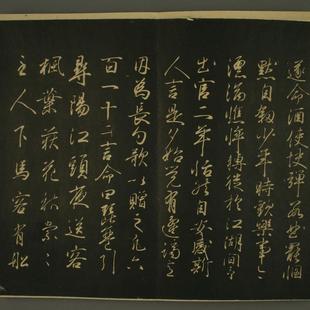 遂命酒使快彈數曲罷憫
默自敘少年時歡樂事今
漂淪憔悴轉徙於江湖間予
出官二年恬然自安感斯
人言是夕始覺有遷謫意
因為長句歌以贈之凡六
百一十二言命曰琵琶引
潯陽江頭夜送客
楓葉荻花秋索〻
主人下馬客在船